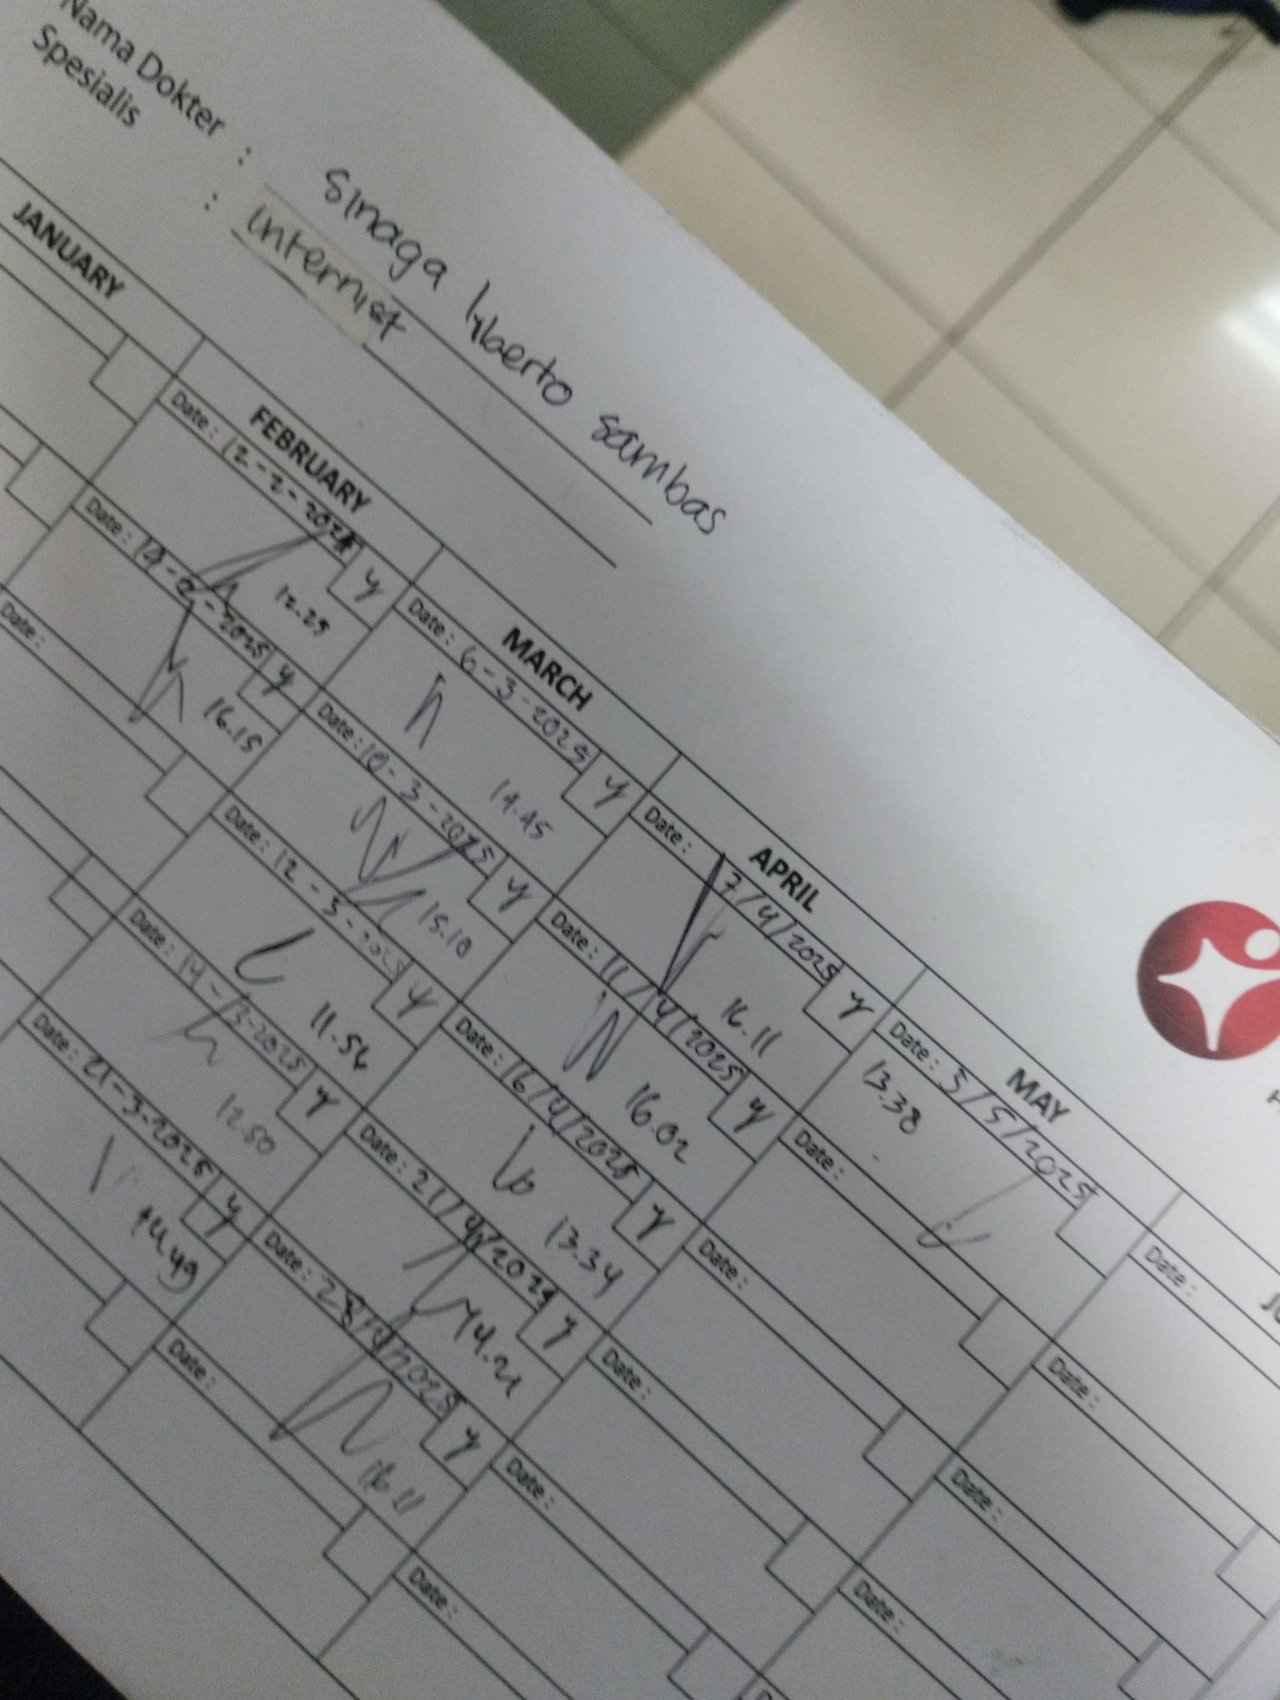 Nama Dokter : Sinaga Liberto sambas
Spesialis : Internist
JANUARY
FEBRUARY
Date : 12-2-2025 y
12.25
Date : 19-2-2025 y
16.15
Date :
MARCH
Date : 6-3-2025 y
14.45
Date : 10-3-2025 y
15.10
Date : 12-3-2025 y
11.56
Date : 14-3-2025 y
12.50
Date : 21-3-2025 y
APRIL
Date : 7/4/2025 y
16.11
Date : 11/4/2025 y
16.02
Date : 16/4/2025 y
13.34
Date : 21/4/2025 y
14.21
Date : 28/4/2025 y
16.11
Date :
Date :
MAY
Date : 5/5/2025
13.38
Date :
Date :
Date :
Date :
Date :
Date :
Date :
Date :